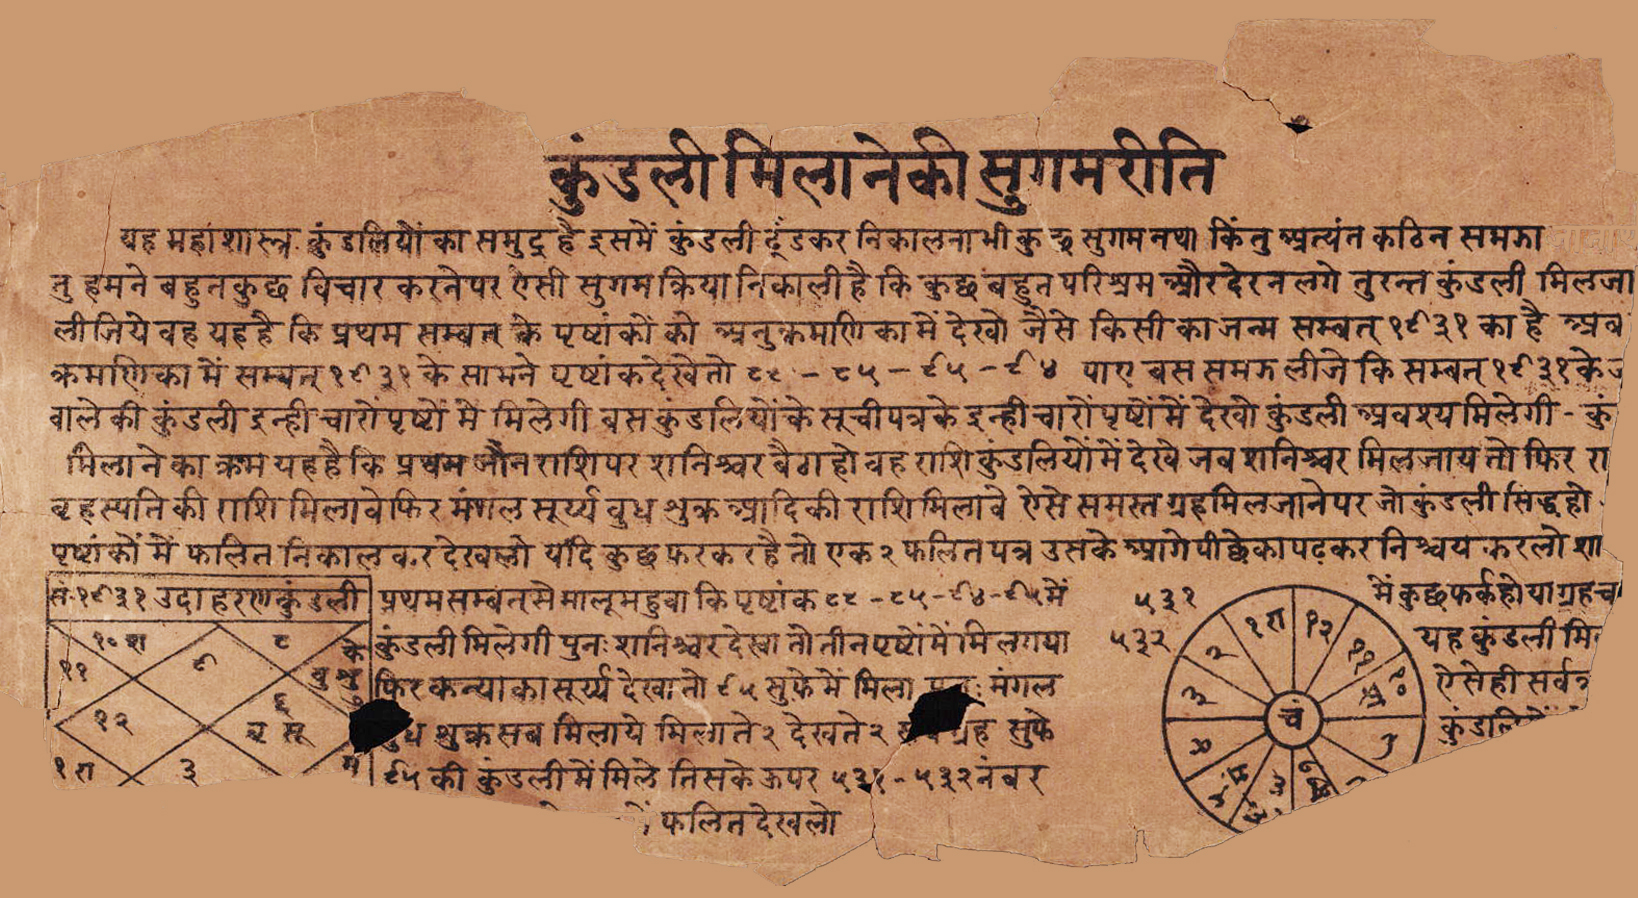 कुंडली मिलानेकी सुगमरीति
यह महाशास्त्र कुंडलियों का समुद्र है इसमें कुंडली ढूंडकर निकालनाभी कुछ सुगम नथा किंतु अत्यंत कठिन समझा
तु हमने बहुतकुछ विचार करनेपर ऐसी सुगम क्रिया निकाली है कि कुछ बहुत परिश्रम और देर न लगे तुरन्त कुंडली मिलजा
लीजिये वह यह है कि प्रथम सम्बत् के पृष्टांकों को अनुक्रमणिका में देखो जैसे किसी का जन्म सम्बत् १९३१ का है अब
क्रमणिका में सम्बत् १९३१ के सामने पृष्टांक देखे तो ८८ - ८५ - ९५ - ९४ पाए बस समझ लीजे कि सम्बत् १९३१ के
वाले की कुंडली इन्ही चारों पृष्टों में मिलेगी बस कुंडलियों के सूचीपत्र के इन्ही चारों पृष्टों में देखो कुंडली अवश्य मिलेगी - कुं
मिलाने का क्रम यह है कि प्रथम जौन राशि पर शनिश्चर बैठा हो वह राशि कुंडलियों में देखे जब शनिश्चर मिलजाय तो फिर रा
वृहस्पति की राशि मिलावे फिर मंगल सूर्य्य बुध शुक्र आदि की राशि मिलावे ऐसे समस्त ग्रह मिलजाने पर जो कुंडली सिद्ध हो
पृष्टांकों में फलित निकाल कर देखलो यदि कुछ फरक रहै तो एक २ फलित पत्र उसके आगे पीछे का पढ़कर निश्चय करलो शा
सं. १९३१ उदाहरण कुंडली
१० श
८
के
११
९
बु शु
१२
६
बृ सू
१ रा
३
प्रथम सम्बत् सै मालूम हुवा कि पृष्टांक ८८ - ८५ - ९४ - ९५ में
कुंडली मिलेगी पुनः शनिश्चर देखा तो तीन पृष्टों में मिल गया
फिर कन्या का सूर्य्य देखा तो ९५ सुफे में मिला मंगल
शुक्र सब मिलाये मिलगते २ देखते २ ग्रह सुफे
९५ की कुंडली में मिले तिसके ऊपर ५३१ - ५३२ नंबर
फलित देखलो
५३१
५३२
१ रा
१२
११
२
३
४
चं
में कुछ फर्क हो या ग्रह च
यह कुंडली मि
ऐसे ही सर्वत्र